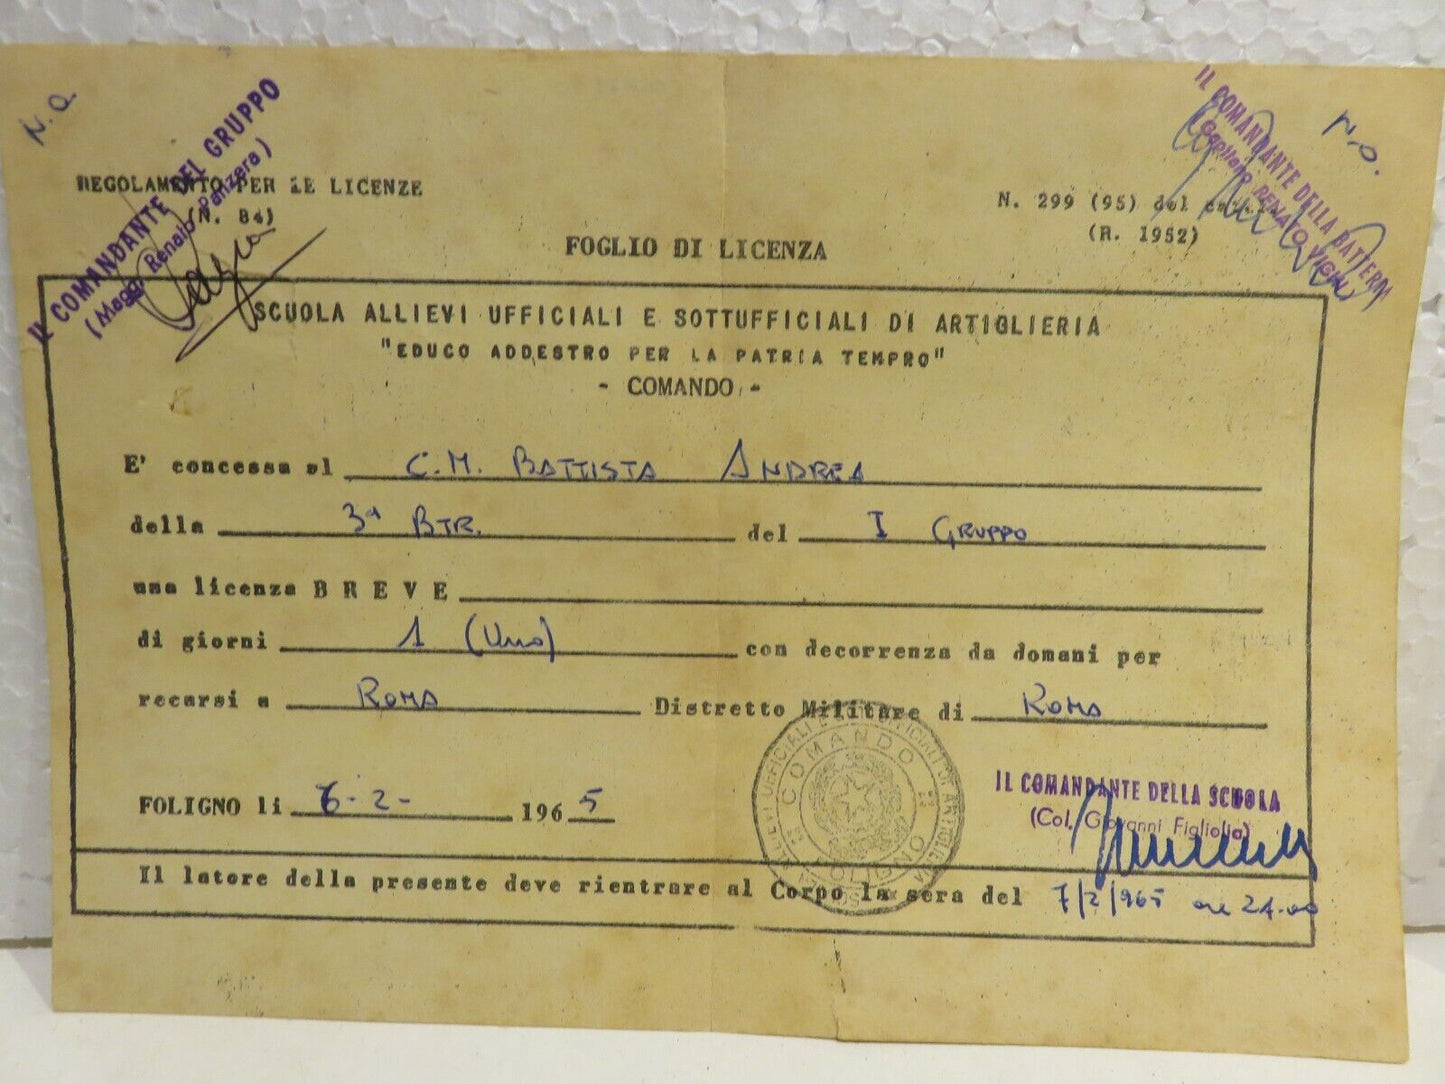 N.O.
IL COMANDANTE DEL GRUPPO
(Magg. Renato Panzera)
IL COMANDANTE DELLA BATTERIA
(Capitano RENATO
N.O.
REGOLAMENTO PER LE LICENZE
(N. 84)
N. 299 (95) del
(R. 1952)
FOGLIO DI LICENZA
SCUOLA ALLIEVI UFFICIALI E SOTTUFFICIALI DI ARTIGLIERIA
"EDUCO ADDESTRO PER LA PATRIA TEMPRO"
- COMANDO -
E' concessa al C.M. BATTISTA ANDREA
della 3ª BTR. del I GRUPPO
una licenza BREVE
di giorni 1 (Uno) con decorrenza da domani per
recarsi a ROMA Distretto Militare di ROMA
COMANDO
FOLIGNO
IL COMANDANTE DELLA SCUOLA
(Col. Giovanni Figliolia)
FOLIGNO li 6-2- 1965
Il latore della presente deve rientrare al Corpo la sera del 7/2/965 ore 24.00